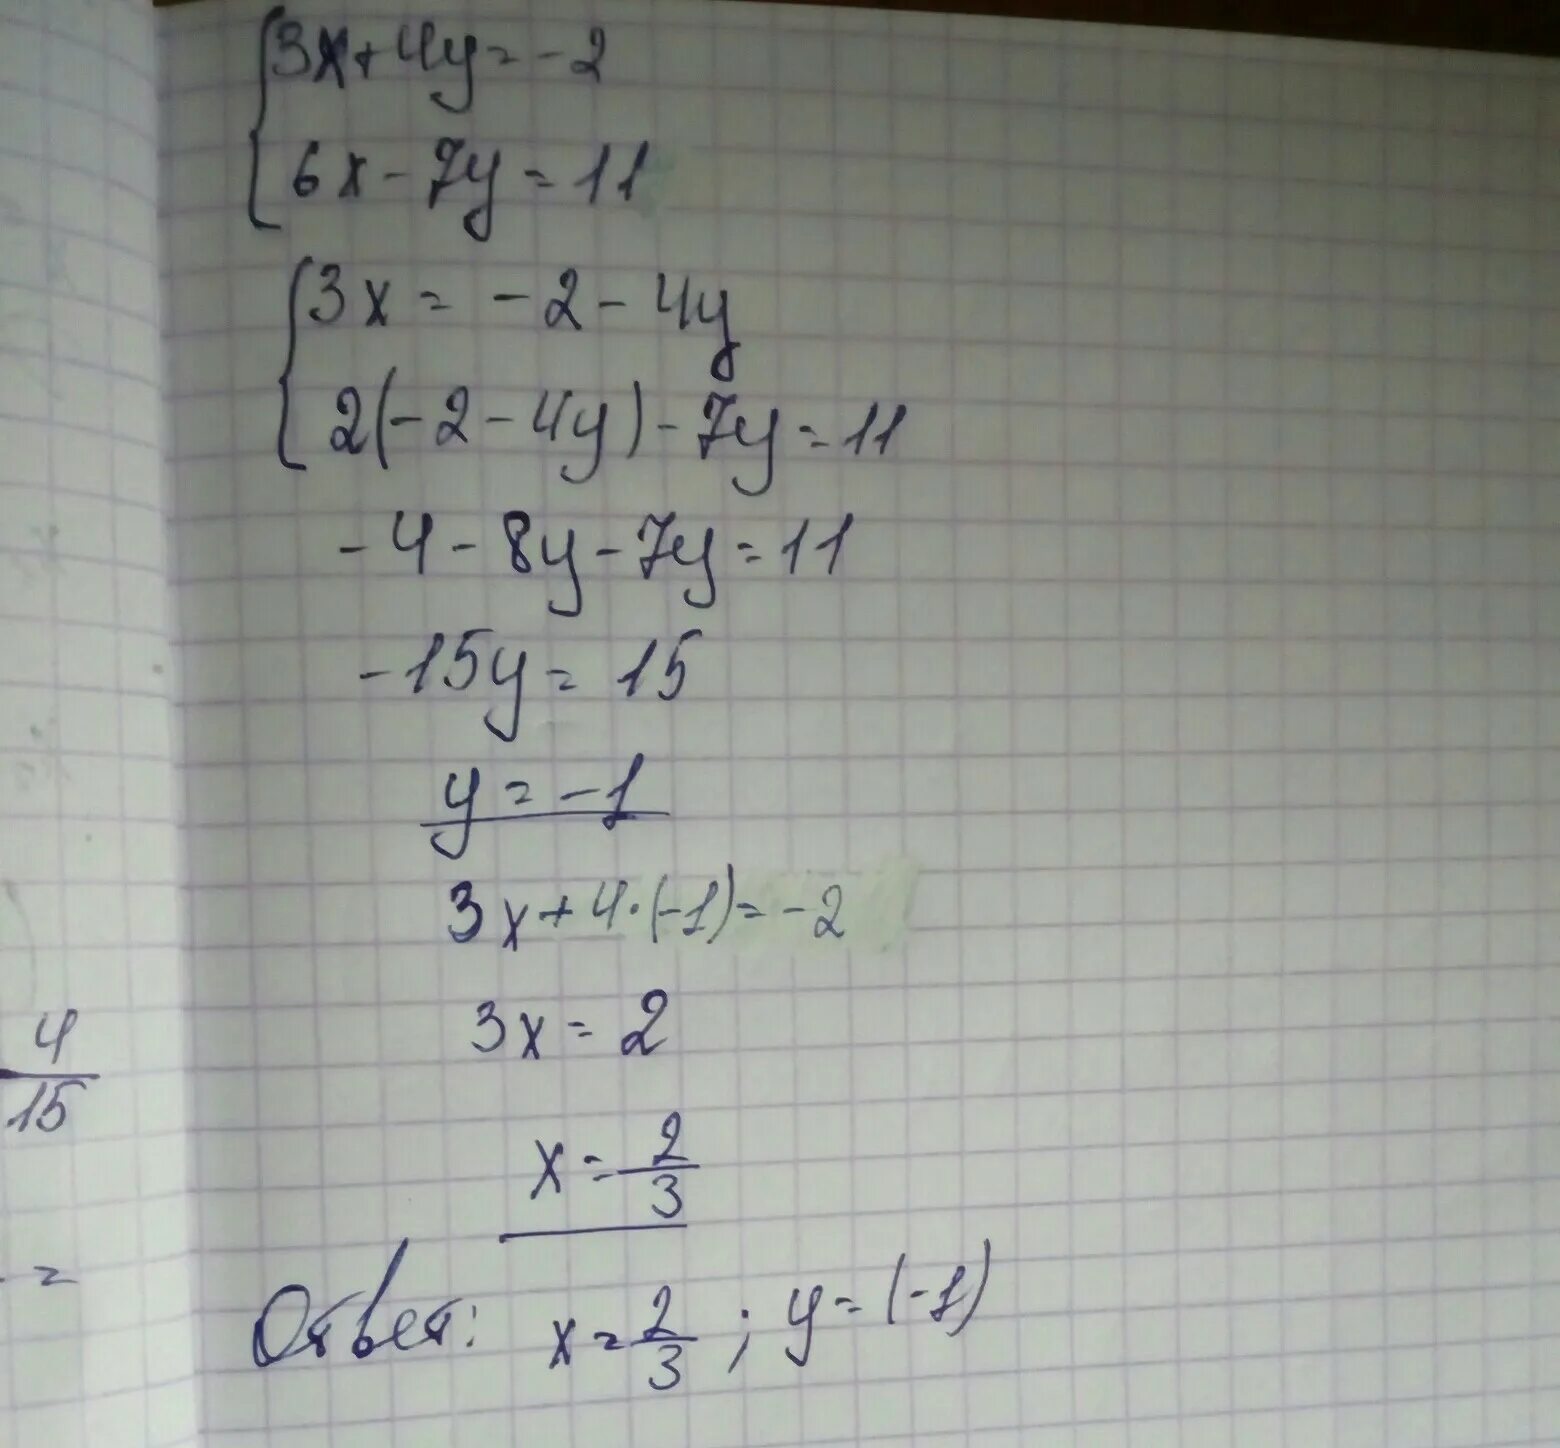 3x+4y=-2
6x-7y=11
3x=-2-4y
2(-2-4y)-7y=11
-4-8y-7y=11
-15y=15
y=-1
3x+4·(-1)=-2
3x=2
x=2/3
Ответ: x=2/3; y=(-1)
4/15
=